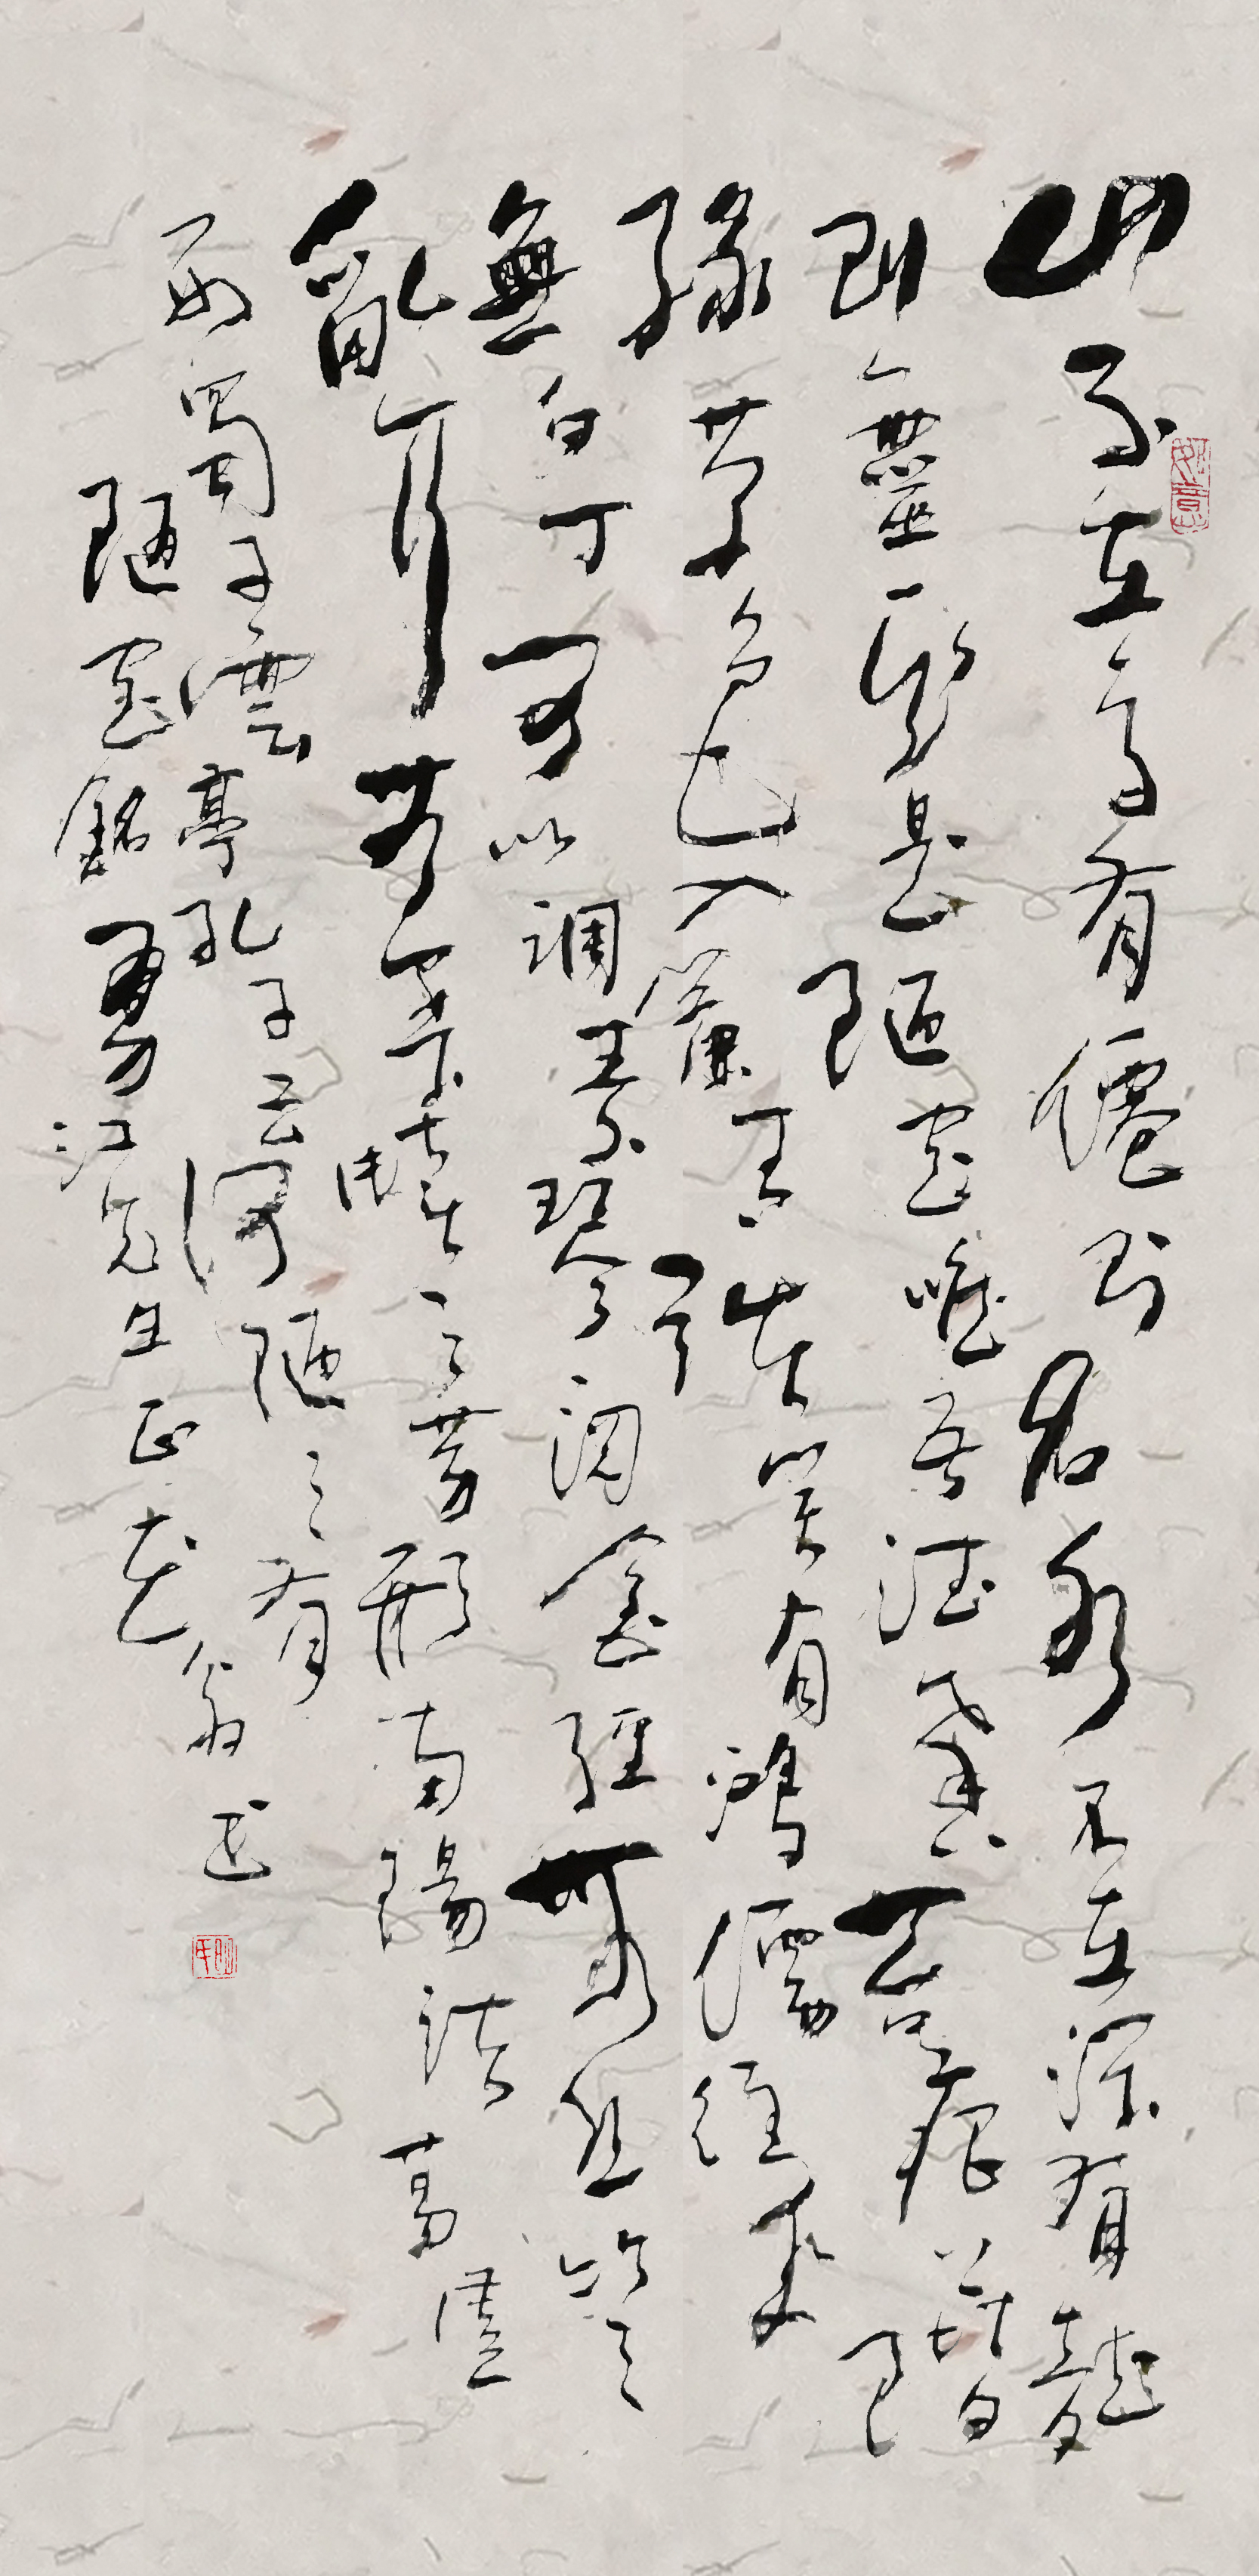 山不在高有僊則名水不在深有龍
則靈斯是陋室唯吾德馨苔痕階
綠草色入簾青談笑有鴻儒往來
無白丁可以調素琴閱金經無絲竹之
亂耳無案牘之勞形南陽諸葛廬
西蜀子雲亭孔子云何陋之有
陋室銘勇江先生正翁書
如意